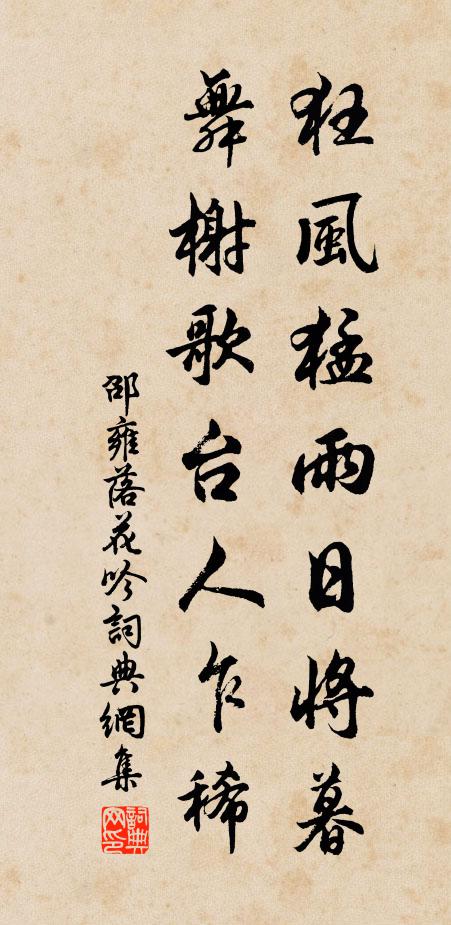 狂風猛雨日將暮
舞榭歌台人乍稀
邵雍落花吟詞典網集
詞典网印